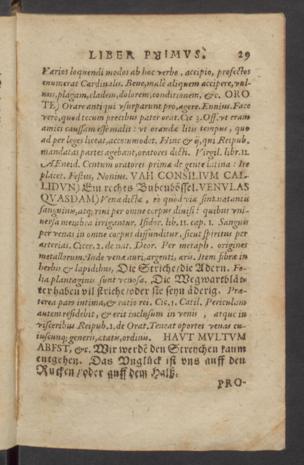 LIBER PRIMVS. 29
Varios loquendi modos ab hoc verbo, accipio, profectos
enumerat Cardinalis. Bene, malè aliquem accipere, vul-
nus, plagam, cladem, dolorem, conditionem, &c. ORO
TE) Orare anti qui vsurparunt pro, agere. Ennius. Face
vero, quod tecum precibus pater orat. Cic 3. Off. vt eram
amici caussam essem alit: vt orandæ litis tempus, quo
ad per leges liceat, accommodet. Hinc & ij, qui Reipub.
mandatas partes agebant, oratores dicti. Virgil. lib. 11.
Æneid. Centum oratores prima de gente Latina: Ire
places. Festus, Nonius. VAH CONSILIVM CAL-
LIDVM) Ein rechts Bubenbössel. VENVLAS
QVASDAM) Vena dicta, eo quod via sint natantis
sanguinis, atq; riui per omne corpus diuisi: quibus vni-
uersa membra irrigantur. Isidor. lib. 11. cap. 1. Sanguis
per venas in omne corpus diffunditur, sicut spiritus per
arterias. Cicer. 2. de nat. Deor. Per metaph. origines
metallorum. Inde venæ auri, argenti, æris. Item fibræ in
herbis & lapidibus, Die Striche/die Adern. Fo-
lia plantaginis sunt venosa. Die Wegwarthblät-
ter haben vil striche/oder sie seyn äderig. Præ-
terea pars intima, & ratio rei. Cic. 1. Catil. Periculum
autem residebit, & erit inclusum in venis, atque in
visceribus Reipub. 2. de Orat. Teneat oportet venas cu-
iuscunq; generis, ætatis, ordinis. HAVT MVLTVM
ABEST, &c. Wir werdē den Streychen kaum
entgehen. Das Vnglück ist vns auff den
Rucken/oder auff dem Halß.
PRO-